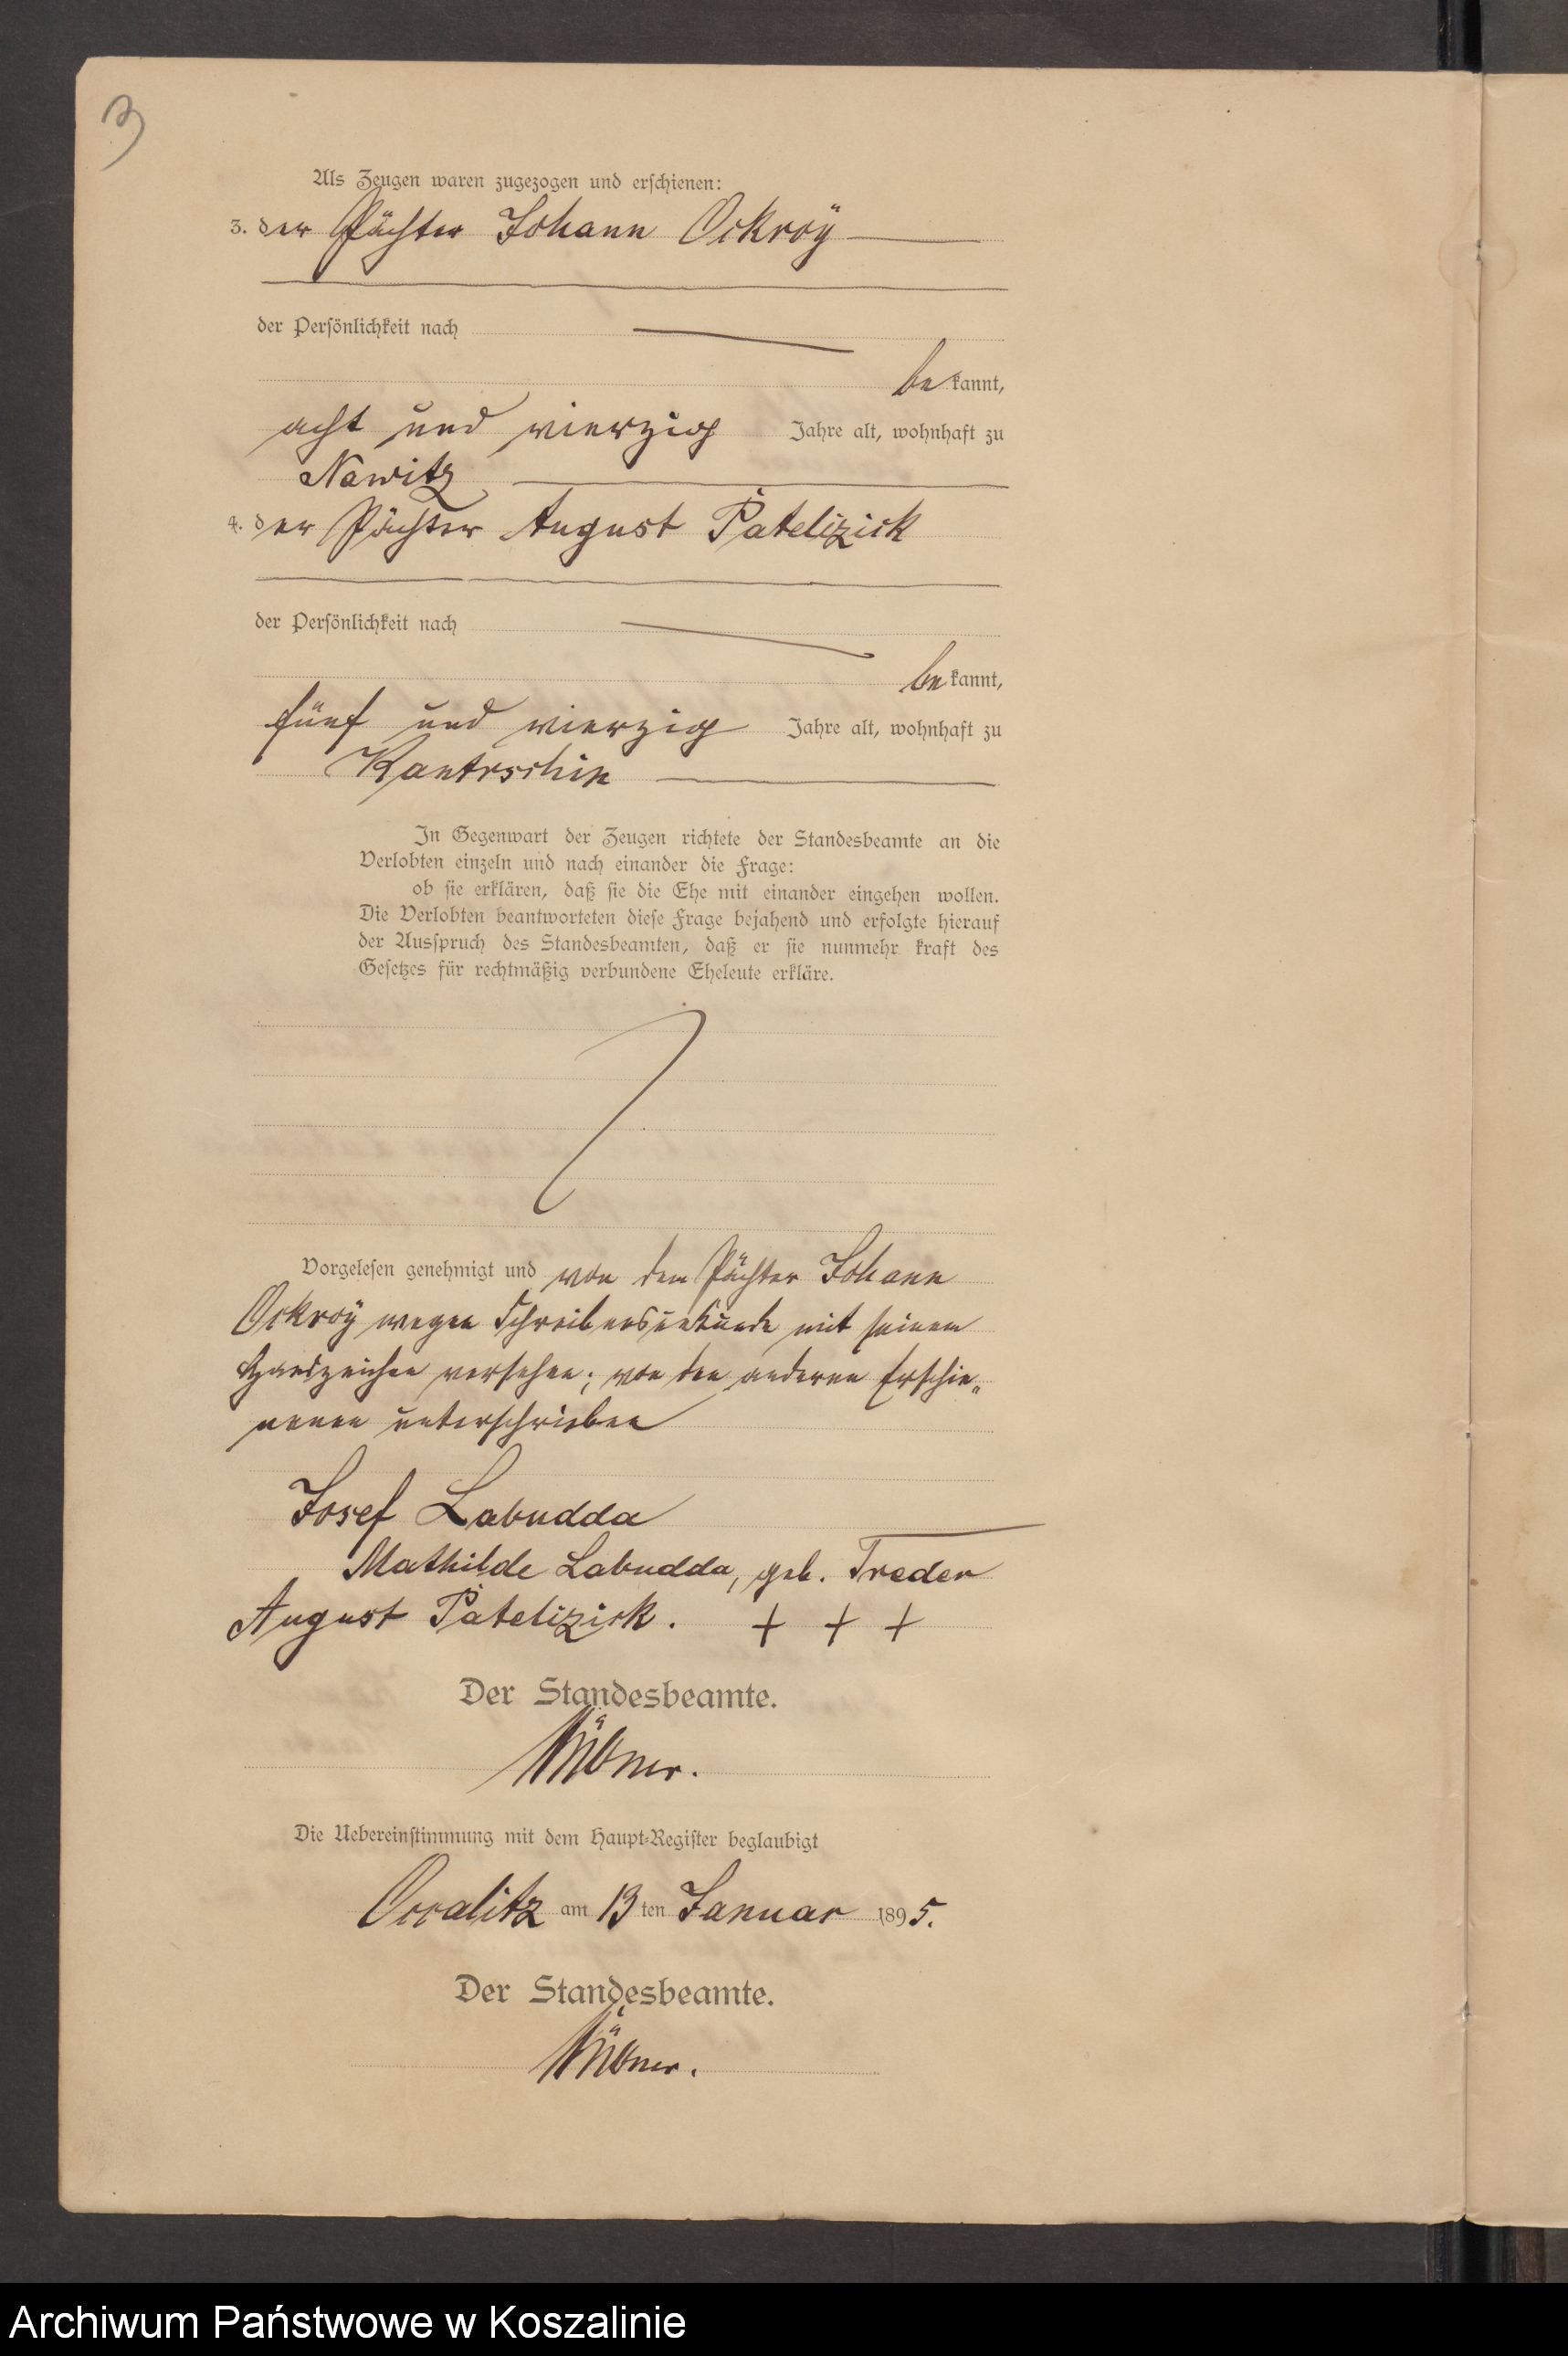 3
Als Zeugen waren zugezogen und erschienen:
3. der Pächter Johann Ockroÿ
der Persönlichkeit nach
bekannt,
acht und vierzig Jahre alt, wohnhaft zu
Nawitz
4. der Pächter August Patelizick
der Persönlichkeit nach
bekannt,
fünf und vierzig Jahre alt, wohnhaft zu
Kantrschin
In Gegenwart der Zeugen richtete der Standesbeamte an die
Verlobten einzeln und nach einander die Frage:
ob sie erklären, daß sie die Ehe mit einander eingehen wollen.
Die Verlobten beantworteten diese Frage bejahend und erfolgte hierauf
der Ausspruch des Standesbeamten, daß er sie nunmehr kraft des
Gesetzes für rechtmäßig verbundene Eheleute erkläre.
Vorgelesen genehmigt und von dem Pächter Johann
Ockroÿ wegen Schreibensunkunde mit seinem
Handzeichen versehen; von den anderen Erschie„
nenen unterschrieben
Josef Labudda
Mathilde Labudda, geb. Treder
August Patelizick. + + +
Der Standesbeamte.
Die Uebereinstimmung mit dem Haupt-Register beglaubigt
Occalitz am 13ten Januar 1895.
Der Standesbeamte.
Archiwum Państwowe w Koszalinie